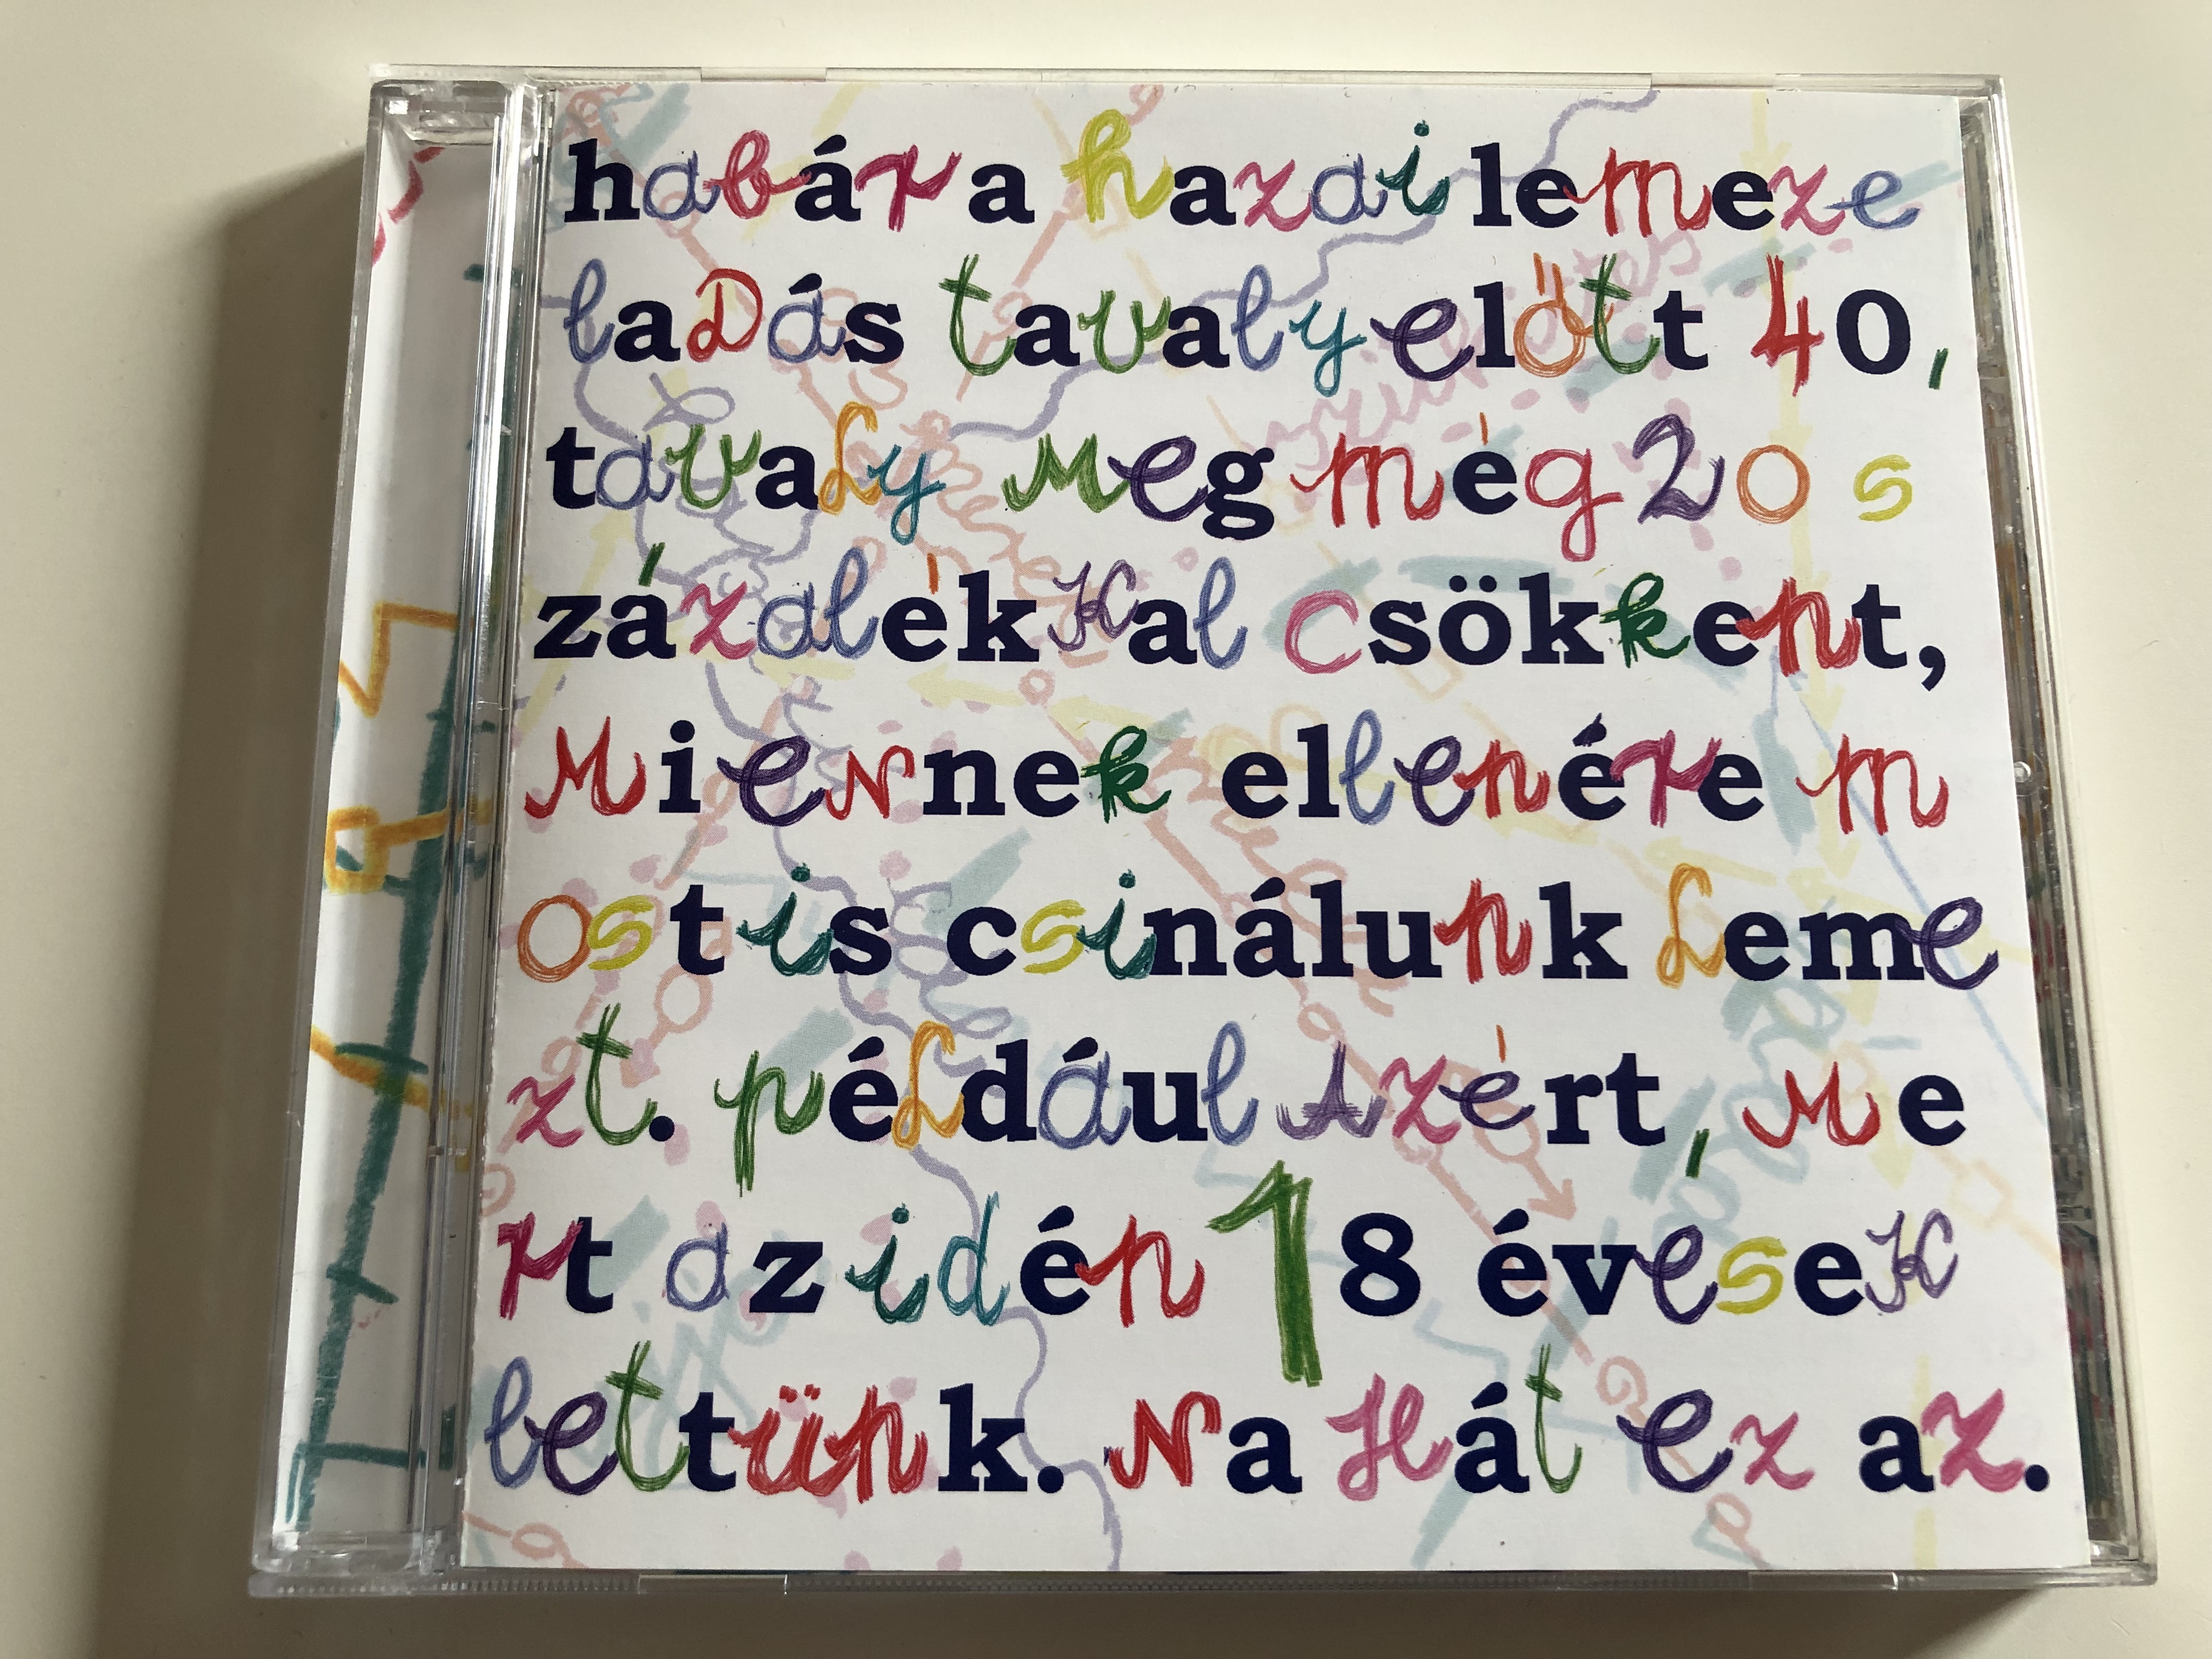 habár a hazai lemeze
laDás tavalyelőtt 40,
tavaLy Meg még 20 s
zázalékKal csökkent,
Mi eNnek ellenére m
ost is csinálunk Leme
zt. péLdául Azért, Me
rt az idén 18 évesek
lettünk. Na Hát ez az.